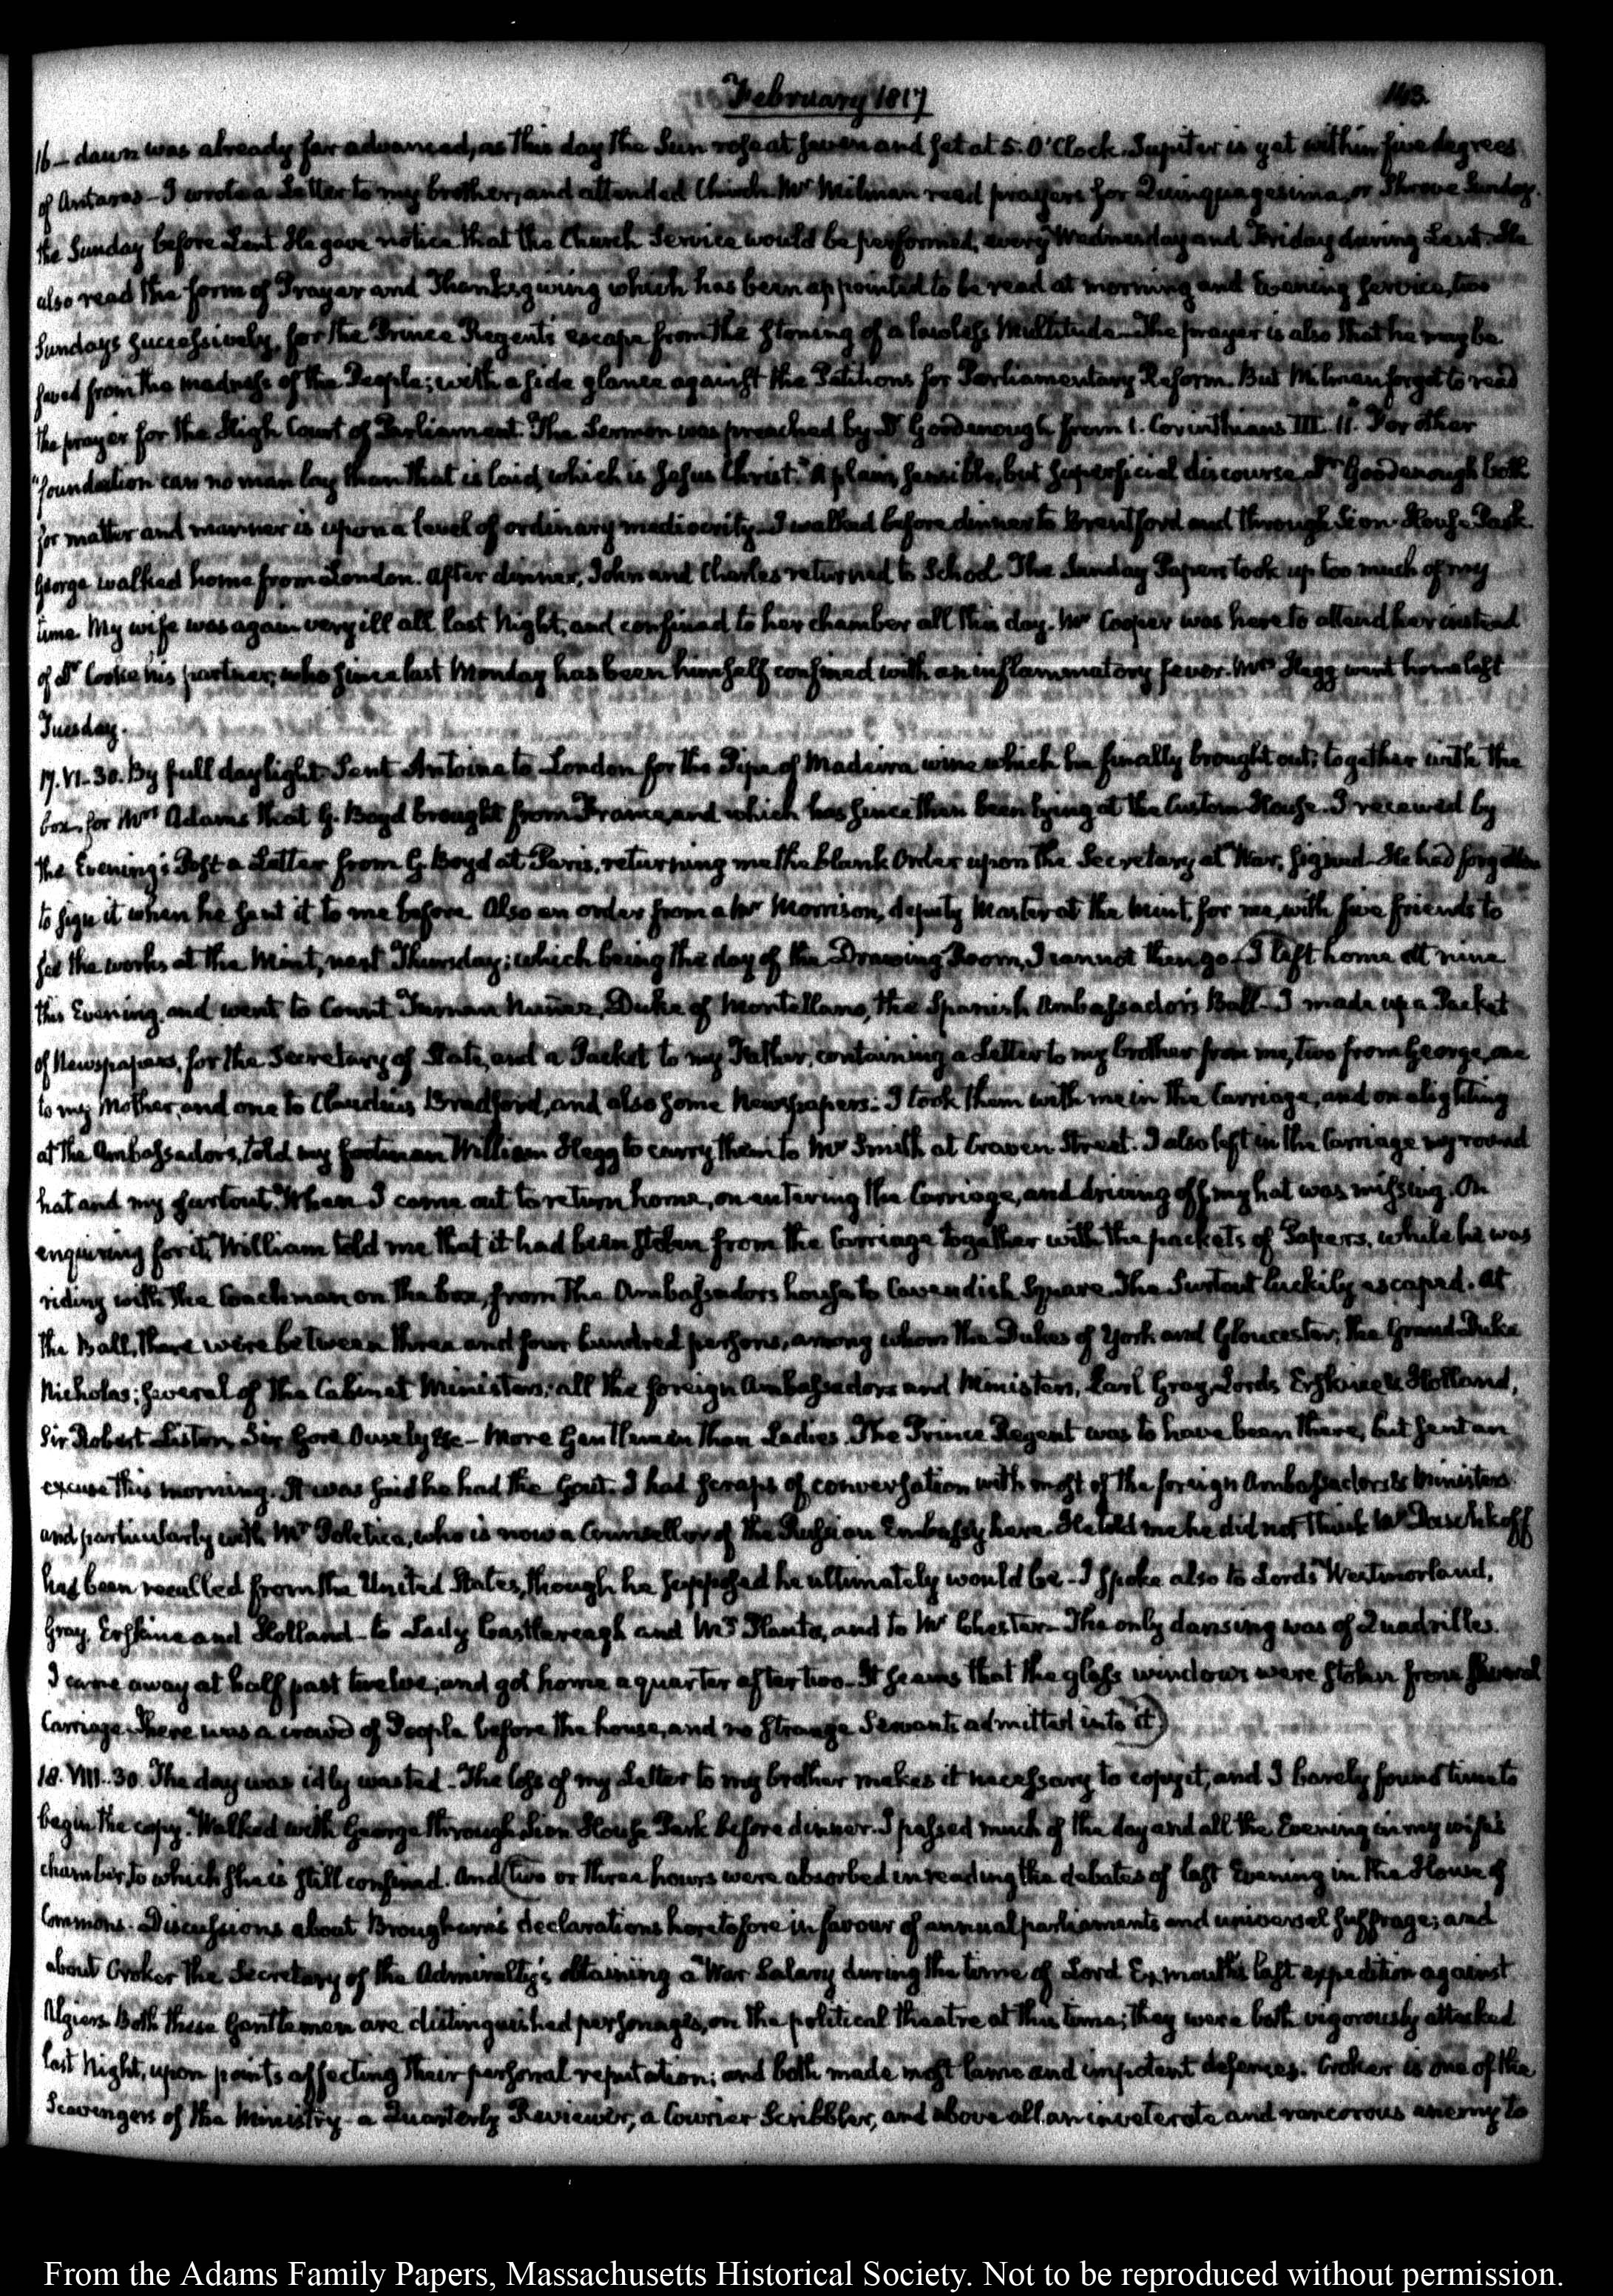 February 1817
143.
16 – dawn was already far advanced, as this day the Sun rose at seven and set at 5. O'Clock. Jupiter is yet within five degrees
of Antares – I wrote a Letter to my brother, and attended Church. Mr Milman read prayers for Quinquagesima, or Shrove Sunday.
the Sunday before Lent. He gave notice that the Church Service would be performed, every Wednesday and Friday during Lent. He
also read the form of Prayer and Thanksgiving which has been appointed to be read at morning and Evening service, two
Sundays successively, for the Prince Regent's escape from the stoning of a lawless Multitude – The prayer is also that he may be
saved from the madness of the People; with a side glance against the Petitions for Parliamentary Reform. But Milman forgot to read
the prayer for the High Court of Parliament. The Sermon was preached by Dr Goodenough from 1. Corinthians III. 11. "For other
"foundation can no man lay than that is laid, which is Jesus Christ." A plain, sensible, but superficial discourse. Dr Goodenough both
for matter and manner is upon a level of ordinary mediocrity – I walked before dinner to Brentford and through Sion-House Park.
George walked home from London. After dinner, John and Charles returned to School. The Sunday Papers took up too much of my
time. My wife was again very ill all last Night, and confined to her chamber all this day. Mr Cooper was here to attend her instead
of Dr Cooke his partner, who since last Monday has been himself confined with an inflammatory fever. Mrs Hegg went home last
Tuesday.
17. VI. 30. By full daylight. Sent Antoine to London for the Pipe of Madeira wine which he finally brought out; together with the
box, for Mrs Adams that G. Boyd brought from France, and which has since then been lying at the Custom-House. I received by
the Evening's Post a Letter from G. Boyd at Paris, returning me the blank Order upon the Secretary at War, signed – He had forgotten
to sign it when he sent it to me before. Also an order from a Mr Morrison, deputy Master at the Mint, for me, with five friends to
see the works at the Mint, next Thursday; which being the day of the Drawing Room, I cannot then go – (I left home at nine
this Evening, and went to Count Fernan Nuñez, Duke of Montellano, the Spanish Ambassador's Ball – I made up a Packet
of Newspapers, for the Secretary of State, and a Packet to my Father, containing a Letter to my brother from me, two from George, one
to my Mother, and one to Claudius Bradford, and also some Newspapers. I took them with me in the Carriage, and on alighting
at the Ambassadors, told my footman William Hegg to carry them to Mr Smith at Craven Street. I also left in the Carriage my round
hat and my surtout. When I came out to return home, on entering the Carriage, and driving off my hat was missing. On
enquiring for it, William told me that it had been stolen from the Carriage together with the packets of Papers, while he was
riding with the Coachman on the box, from the Ambassadors house to Cavendish Square. The Surtout luckily escaped. At
the Ball, there were between three and four hundred persons, among whom the Dukes of York and Gloucester; the Grand Duke
Nicholas; several of the Cabinet Ministers; all the foreign Ambassadors and Ministers, Earl Grey, Lords Erskine & Holland,
Sir Robert Liston, Sir Gore Ousely &c – More Gentlemen than Ladies. The Prince Regent was to have been there, but sent an
excuse this morning. It was said he had the Gout. I had scraps of conversation with most of the foreign Ambassadors & Ministers
and particularly with Mr Poletica, who is now a Counsellor of the Russian Embassy here. He told me he did not think Mr Daschkoff
had been recalled from the United States, though he supposed he ultimately would be – I spoke also to Lords Westmorland,
Grey, Erskine and Holland – to Lady Castlereagh and Mrs Planta, and to Mr Chester – The only dansing was of Quadrilles.
I came away at half past twelve; and got home a quarter after two – It seems that the glass windows were stolen from several
Carriages. There was a crowd of People before the house, and no strange Servants admitted into it.)
18. VIII. 30. The day was idly wasted – The loss of my Letter to my brother makes it necessary to copy it, and I barely found time to
begin the copy. Walked with George through Sion House Park before dinner. I passed much of the day and all the Evening in my wife's
chamber, to which she is still confined. And (two or three hours were absorbed in reading the debates of last Evening in the House of
Commons. Discussions about Brougham's declarations heretofore in favour of annual parliaments and universal suffrage; and
about Croker the Secretary of the Admiralty's obtaining a War Salary during the time of Lord Exmouth's last expedition against
Algiers. Both these Gentlemen are distinguished personages, on the political theatre at this time; they were both vigorously attacked
last Night, upon points affecting their personal reputation; and both made most lame and impotent defences. Croker is one of the
Scavengers of the Ministry – a Quarterly Reviewer, a Courier Scribbler, and above all an inveterate and rancorous enemy to
From the Adams Family Papers, Massachusetts Historical Society. Not to be reproduced without permission.